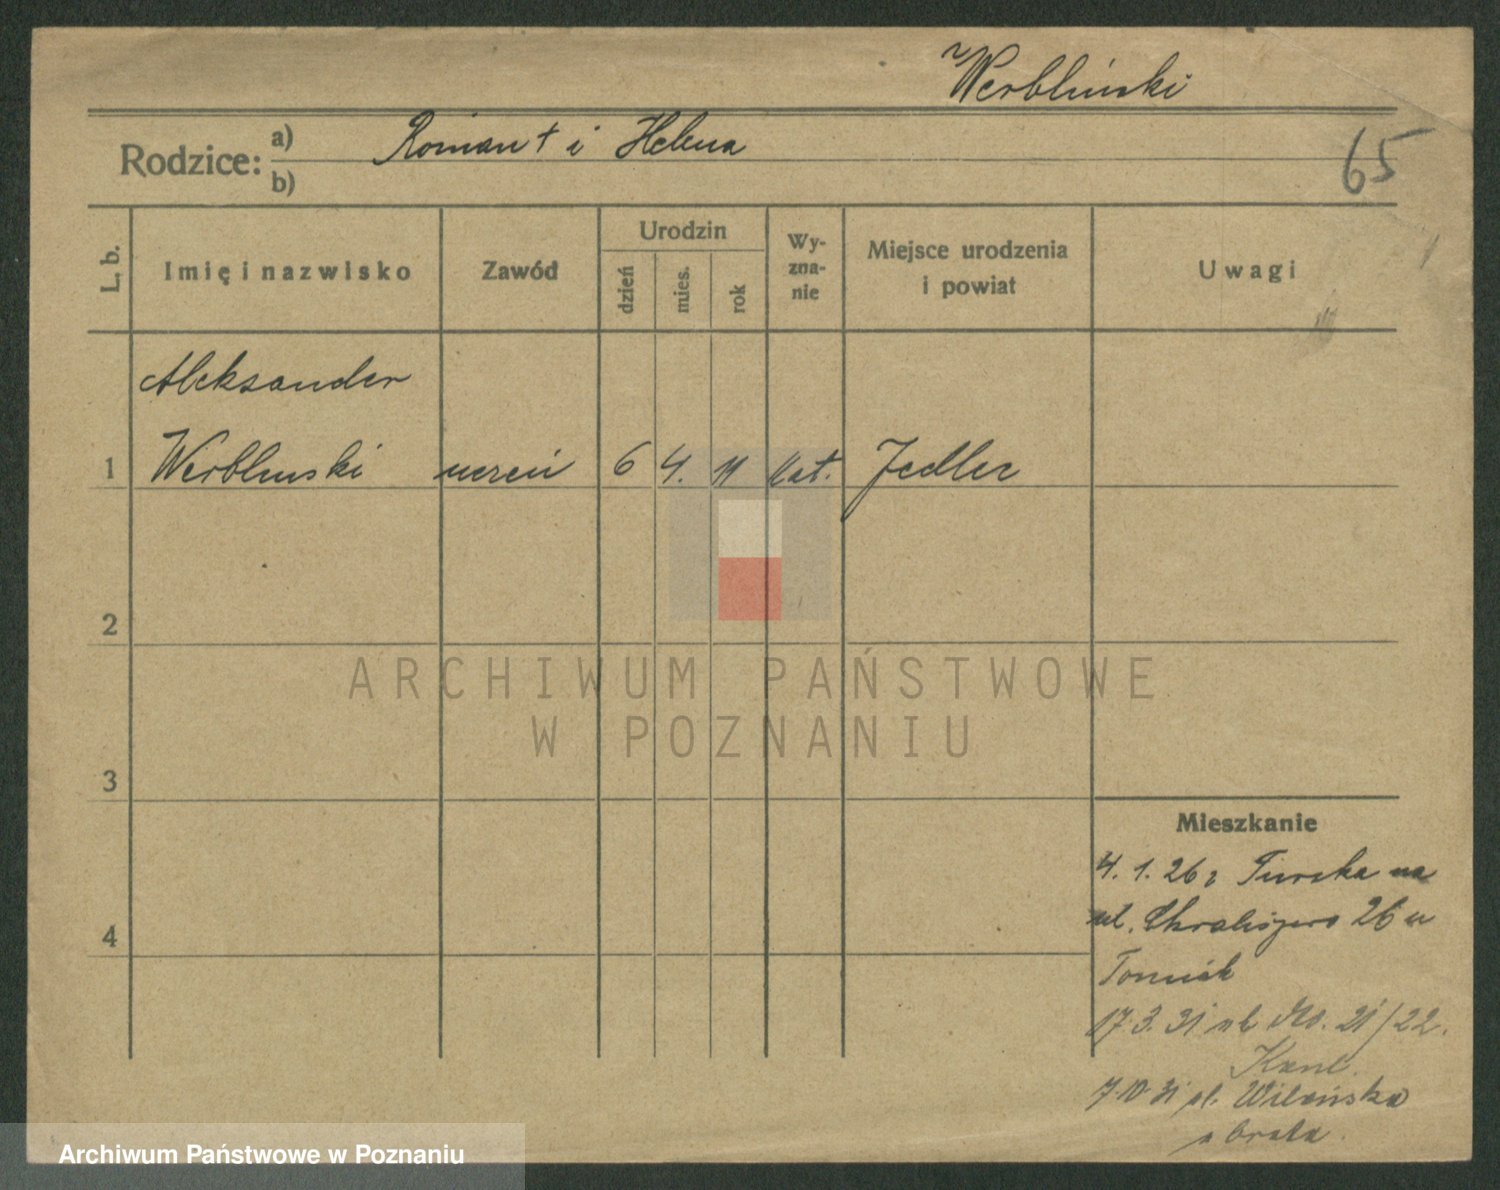 Werbliński
Rodzice: a) Roman † i Helena
b)
65
L. b.
Imię i nazwisko
Zawód
Urodzin
dzień
mies.
rok
Wy-
zna-
nie
Miejsce urodzenia
i powiat
Uwagi
Aleksander
1 Werbliński uczeń 6 4. 11 kat. Jedlec
2
3
4
Mieszkanie
4. 1. 26 z Turska na
ul. 26 u
Tomiak
17.3.31 21/22.
7.10.31 ul. Wileńska
u brata.
ARCHIWUM PAŃSTWOWE
W POZNANIU
Archiwum Państwowe w Poznaniu